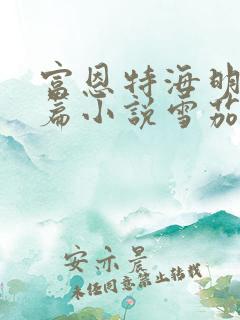 富恩特海明
篇小說雪茄
安亦晨
未经同意禁止转载